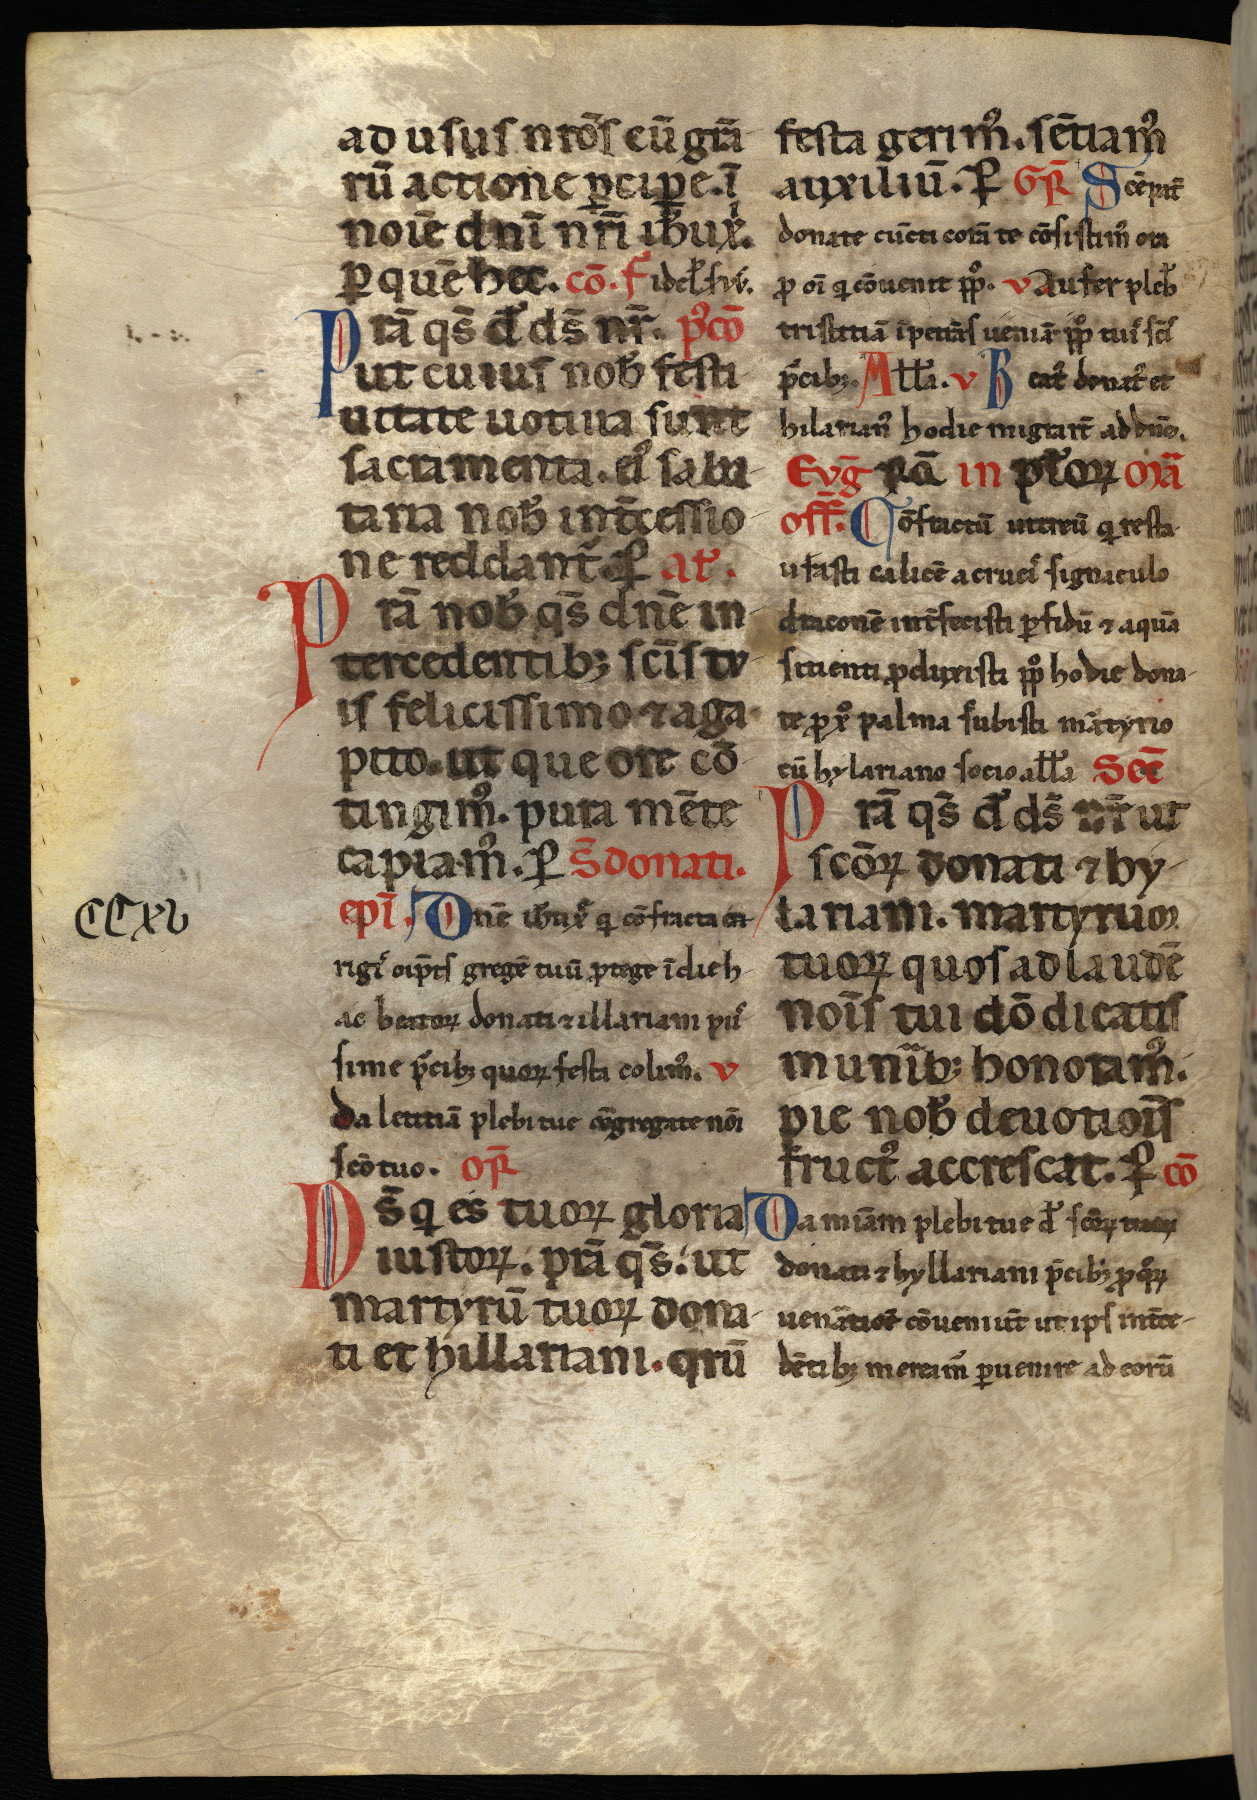 ad usus nr̃os cũ grã
rũ actione ꝑcipe. ĩ
noĩe dñi nr̃i ihũ xp̃i.
ꝑ quẽ hec. cõ. Fidel' ſer.
Prã qs̃ d̃s ds̃ nr̃. p'cõ
ut cuius nob̃ festi
uitate uotiua sunt
sacramenta. ei' salu
taria nob̃ int̃cessio
ne reddant̃. ꝑ at'.
Prã nob̃ qs̃ dñe in
tercedentibꝫ scĩs tu
is felicissimo ⁊ aga
pito. ut que ore cõ
tingim'. pura mẽte
capiam'. ꝑ S̃ donati.
CCXV
epĩ. Dñe ihũ xp̃e q̃ cõfracta cor
rigis oĩpt̃s gregẽ tuũ ꝓtege ĩ die h
ac beatoꝝ donati ⁊ illariani pii
sime p̃cibꝫ quoꝝ festa colim'. v
Da letitiã plebi tue cõgregate noĩ
scõ tuo. or̃
Ds̃ q̃ es tuoꝝ gloria
iustoꝝ. prã qs̃. ut
martyrũ tuoꝝ dona
ti et hillariani. qrũ
festa gerim'. sẽtiam'
auxiliũ. ꝑ Gr̃ Scẽ pat̃
donate cũcti corã te cõsistim' ora
ꝓ oĩ q̃ cõuenit pp̃o. v Aufer pleb'
tristitiã ĩpetrãs ueniã pp̃o tui scĩ
p̃cibꝫ. All'a. v Beat' donat' et
hilarian' hodie migrar̃t ad dñm.
Evg̃ rã in plr̃oꝝ orã
off̃. Cõfractũ uitreũ q̃ resta
urasti calicẽ a cruci' signaculo
draconẽ int̃fecisti ꝑfidũ ⁊ aquã
sitienti ꝓduxisti pp̃o hodie dona
te ꝓ xp̃o palma subisti martyrio
cũ hylariano socio all'a Secr̃
Prã qs̃ d̃s ds̃ nr̃ ut
scõꝝ donati ⁊ hy
lariani. martyruoꝝ
tuoꝝ quos ad laudẽ
noĩs tui dõ dicatis
munĩbꝫ honoram'.
pie nob̃ deuotiõis
fruct' accrescat. ꝑ cõ
Da uiam plebi tue d̃s scõꝝ tuoꝝ
donati ⁊ hyllariani p̃cibꝫ ꝓ quoꝝ
uenãtiõe cõueniũt ut ipsis int̃ce
dẽtibꝫ mereãm ꝑuenire ad eorũ